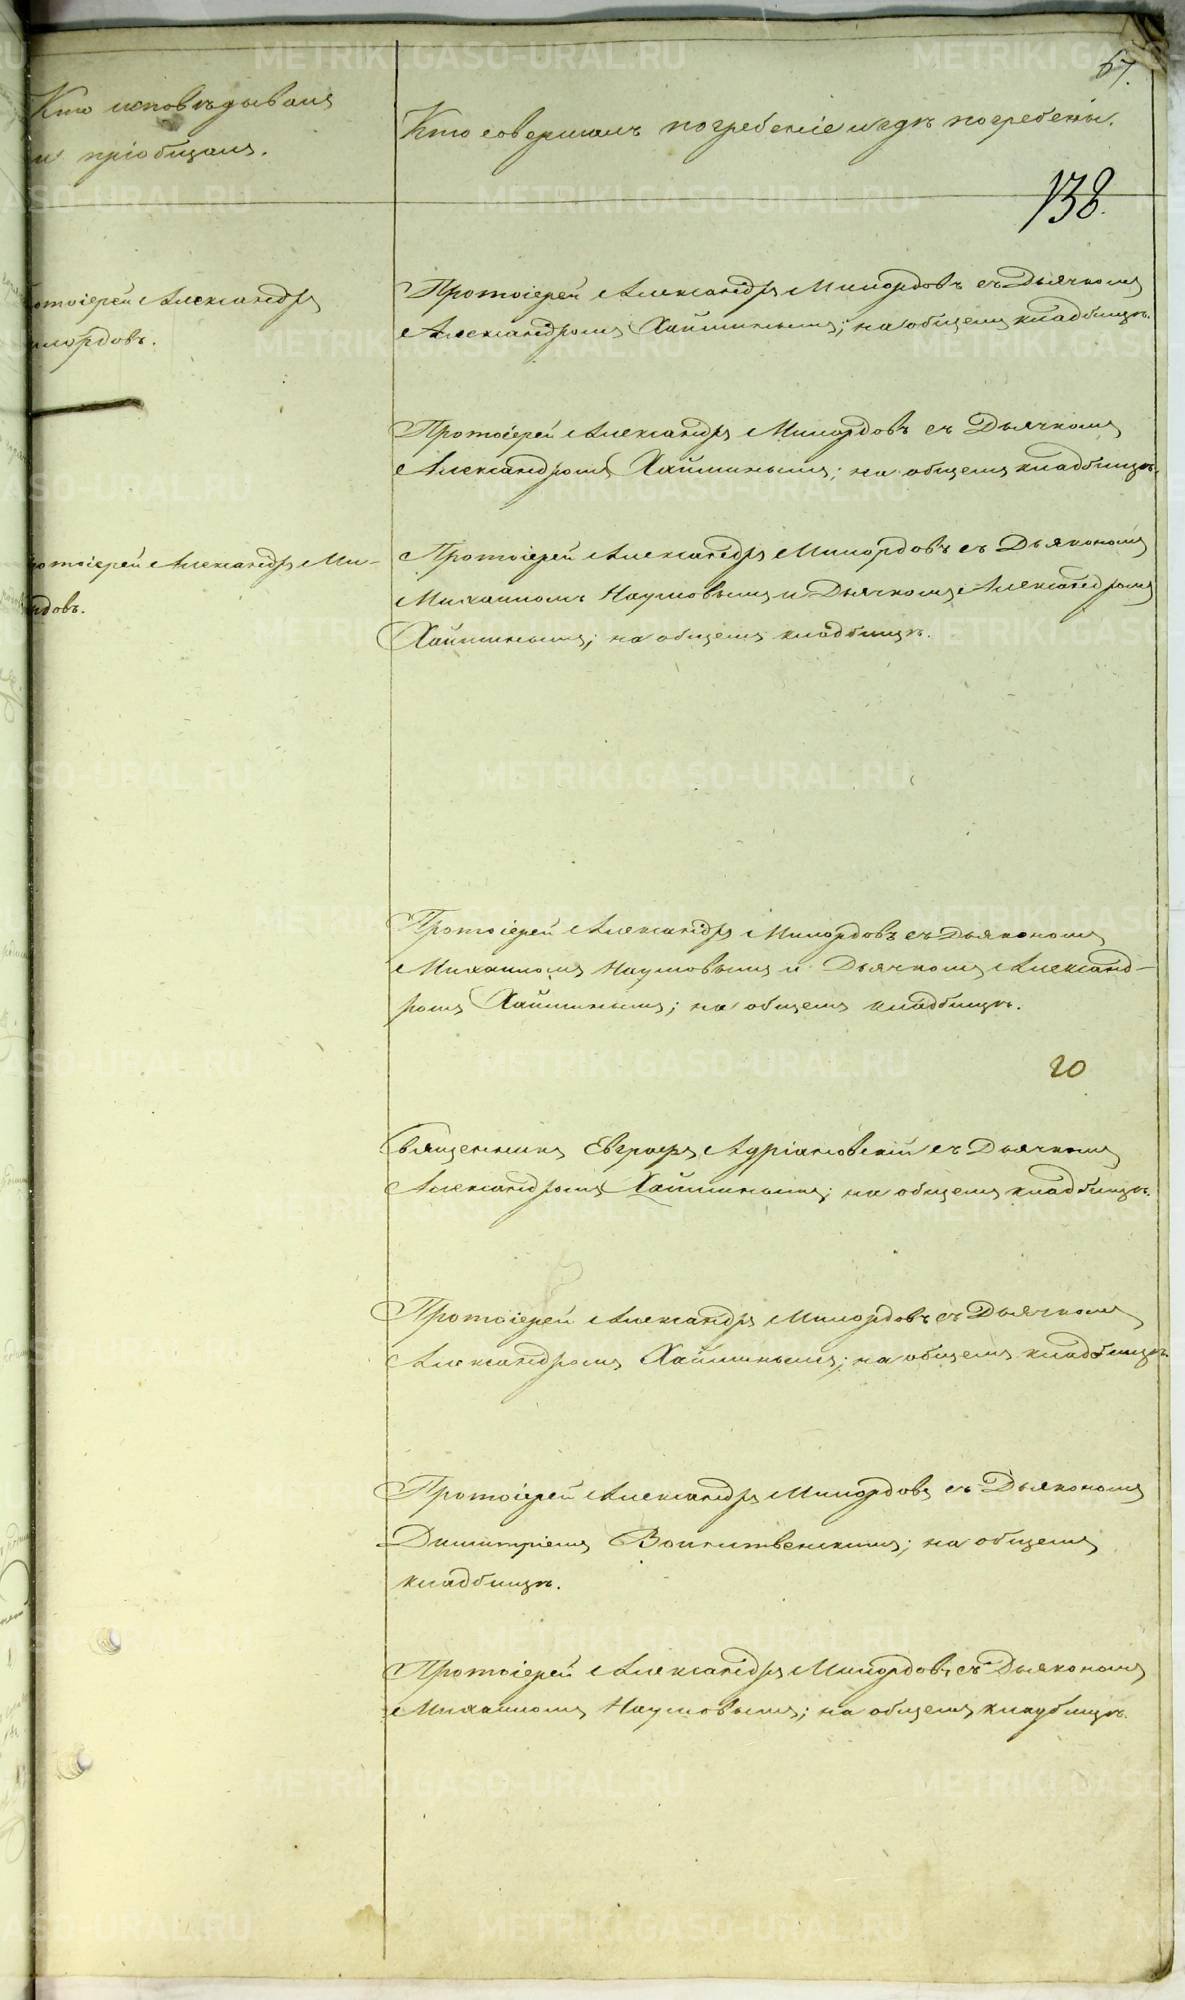 67.
Кто исповѣдывалъ
и пріобщалъ.
Кто совершалъ погребеніе и гдѣ погребены.
138.
Протоіерей Александръ Милордовъ съ Дьячкомъ
Александромъ Хайминымъ; на общемъ кладбищѣ.
отоіерей Александръ
лордовъ.
Протоіерей Александръ Милордовъ съ Дьячкомъ
Александромъ Хайминымъ; на общемъ кладбищѣ.
Протоіерей Александръ Милордовъ съ Дьякономъ
Михаиломъ Наумовымъ и Дьячкомъ Александромъ
Хайминымъ; на общемъ кладбищѣ.
отоіерей Александръ Ми-
рдовъ.
Протоіерей Александръ Милордовъ съ Дьякономъ
Михаиломъ Наумовымъ и Дьячкомъ Александ-
ромъ Хайминымъ; на общемъ кладбищѣ.
20
Священникъ Евграфъ Адріановскій съ Дьячкомъ
Александромъ Хайминымъ; на общемъ кладбищѣ.
Протоіерей Александръ Милордовъ съ Дьячкомъ
Александромъ Хайминымъ; на общемъ кладбищѣ.
Протоіерей Александръ Милордовъ съ Дьякономъ
Димитріемъ на общемъ
кладбищѣ.
Протоіерей Александръ Милордовъ съ Дьякономъ
Михаиломъ Наумовымъ; на общемъ кладбищѣ.
METRIKI.GASO-URAL.RU